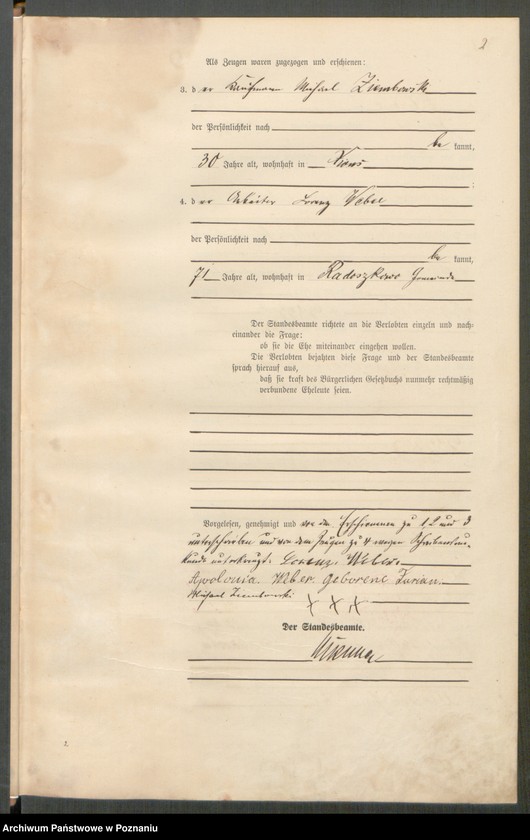 2
Als Zeugen waren zugezogen und erschienen:
3. der Kaufmann Michael Ziembowski
der Persönlichkeit nach
be kannt,
30 Jahre alt, wohnhaft in Xions
4. der Arbeiter Lorenz Weber
der Persönlichkeit nach
be kannt,
71 Jahre alt, wohnhaft in Radoszkowo Gemeinde
Der Standesbeamte richtete an die Verlobten einzeln und nach-
einander die Frage:
ob sie die Ehe miteinander eingehen wollen.
Die Verlobten bejahten diese Frage und der Standesbeamte
sprach hierauf aus,
daß sie kraft des Bürgerlichen Gesetzbuchs nunmehr rechtmäßig
verbundene Eheleute seien.
Vorgelesen, genehmigt und von den Erschienenen zu 1, 2 und 3
unterschrieben und von dem Zeugen zu 4 wegen Schreibensun-
kunde unterkreuzt.
Apolonia Weber geborene Furian
Michael Ziembowski
XXX
Der Standesbeamte.
2.
Archiwum Państwowe w Poznaniu